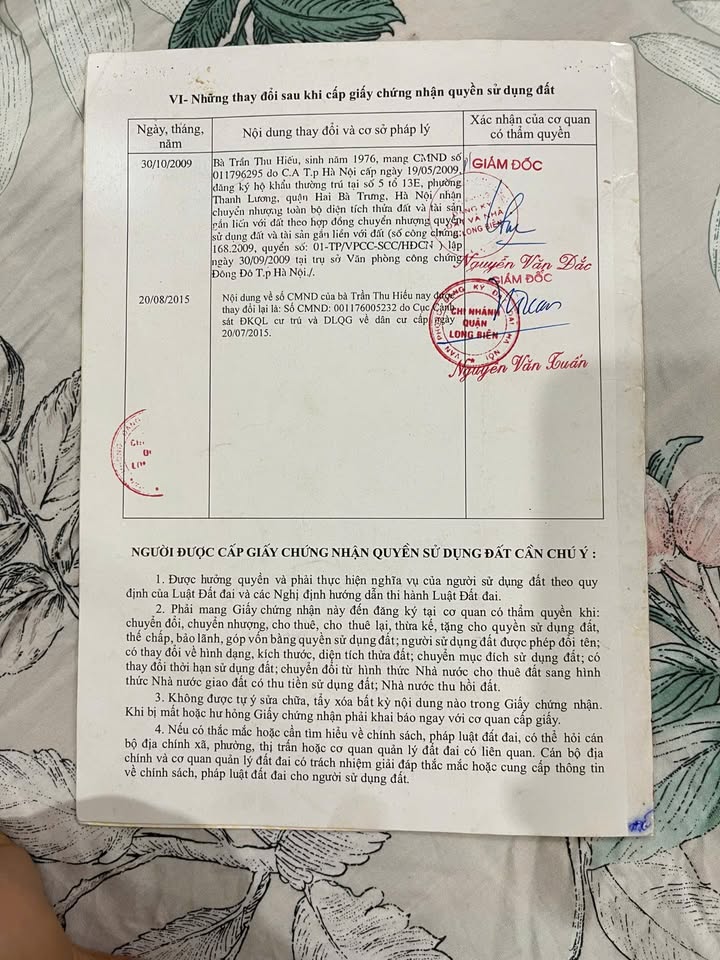 VI- Những thay đổi sau khi cấp giấy chứng nhận quyền sử dụng đất
Ngày, tháng,
năm
Nội dung thay đổi và cơ sở pháp lý
Xác nhận của cơ quan
có thẩm quyền
30/10/2009
Bà Trần Thu Hiếu, sinh năm 1976, mang CMND số
011796295 do C.A T.p Hà Nội cấp ngày 19/05/2009,
đăng ký hộ khẩu thường trú tại số 5 tổ 13E, phường
Thanh Lương, quận Hai Bà Trưng, Hà Nội nhận
chuyển nhượng toàn bộ diện tích thửa đất và tài sản
gắn liền với đất theo hợp đồng chuyển nhượng quyền
sử dụng đất và tài sản gắn liền với đất (số công chứng:
168.2009, quyển số: 01-TP/VPCC-SCC/HĐCN ) lập
ngày 30/09/2009 tại trụ sở Văn phòng công chứng
Đông Đô T.p Hà Nội./.
GIÁM ĐỐC
ĐĂNG KÝ
ĐẤT VÀ NHÀ
LONG BIÊN
Nguyễn Văn Đắc
20/08/2015
Nội dung về số CMND của bà Trần Thu Hiếu nay được
thay đổi lại là: Số CMND: 001176005232 do Cục Cảnh
sát ĐKQL cư trú và DLQG về dân cư cấp ngày
20/07/2015.
GIÁM ĐỐC
CHI NHÁNH
QUẬN
LONG BIÊN
Nguyễn Văn Tuấn
NGƯỜI ĐƯỢC CẤP GIẤY CHỨNG NHẬN QUYỀN SỬ DỤNG ĐẤT CẦN CHÚ Ý :
1. Được hưởng quyền và phải thực hiện nghĩa vụ của người sử dụng đất theo quy
định của Luật Đất đai và các Nghị định hướng dẫn thi hành Luật Đất đai.
2. Phải mang Giấy chứng nhận này đến đăng ký tại cơ quan có thẩm quyền khi:
chuyển đổi, chuyển nhượng, cho thuê, cho thuê lại, thừa kế, tặng cho quyền sử dụng đất,
thế chấp, bảo lãnh, góp vốn bằng quyền sử dụng đất; người sử dụng đất được phép đổi tên;
có thay đổi về hình dạng, kích thước, diện tích thửa đất; chuyển mục đích sử dụng đất; có
thay đổi thời hạn sử dụng đất; chuyển đổi từ hình thức Nhà nước cho thuê đất sang hình
thức Nhà nước giao đất có thu tiền sử dụng đất; Nhà nước thu hồi đất.
3. Không được tự ý sửa chữa, tẩy xóa bất kỳ nội dung nào trong Giấy chứng nhận.
Khi bị mất hoặc hư hỏng Giấy chứng nhận phải khai báo ngay với cơ quan cấp giấy.
4. Nếu có thắc mắc hoặc cần tìm hiểu về chính sách, pháp luật đất đai, có thể hỏi cán
bộ địa chính xã, phường, thị trấn hoặc cơ quan quản lý đất đai có liên quan. Cán bộ địa
chính và cơ quan quản lý đất đai có trách nhiệm giải đáp thắc mắc hoặc cung cấp thông tin
về chính sách, pháp luật đất đai cho người sử dụng đất.